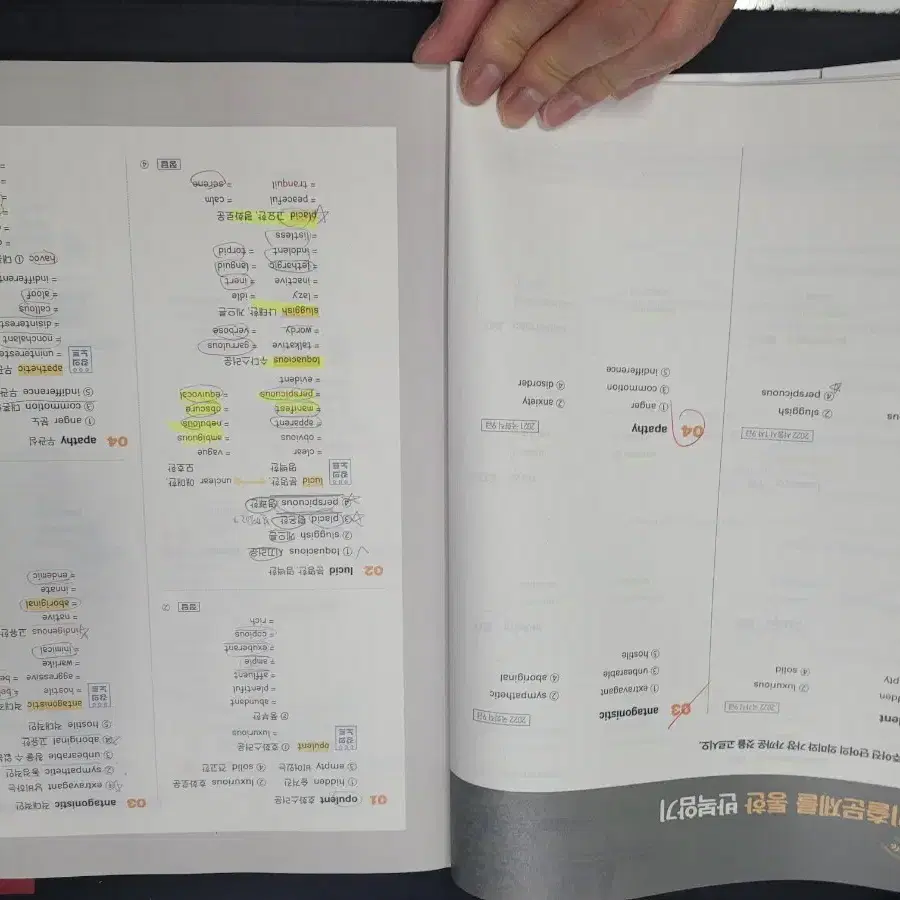 출문제를 통한 반복암기
주어진 단어의 의미와 가장 가까운 것을 고르시오.
② luxurious
④ solid
2022 서울시 1차 9급
② sluggish
④ perspicuous
03 antagonistic
2022 국회직 9급
① extravagant
② sympathetic
③ unbearable
④ aboriginal
⑤ hostile
04 apathy
2021 국회직 9급
① anger
② anxiety
③ commotion
④ disorder
⑤ indifference
01 opulent 호화스러운
① hidden 숨겨진 ② luxurious 호화로운
③ empty 비어있는 ④ solid 견고한
opulent ① 호화스러운
= luxurious
② 풍부한
= abundant
= plentiful
= affluent
= ample
= exuberant
= copious
= rich
정답 ②
02 lucid 분명한, 명백한
① loquacious 시끄러운
② sluggish 게으른
③ placid 평온한
④ perspicuous 명쾌한
lucid 명백한, 분명한 unclear 애매한, 모호한
= clear = vague
= obvious = ambiguous
= apparent = nebulous
= manifest = obscure
= perspicuous = equivocal
= evident
loquacious 수다스러운
= talkative = garrulous
= wordy = verbose
sluggish 나태한, 게으른
= lazy = idle
= inactive = inert
= lethargic = languid
= indolent = torpid
= listless
placid 고요한, 평화로운
= peaceful = calm
= tranquil = serene
정답 ④
03 antagonistic 적대적인
① extravagant 낭비하는
② sympathetic 동정적인
③ unbearable 참을 수 없는
④ aboriginal 고유한
⑤ hostile 적대적인
antagonistic 적대적
= hostile
= aggressive
= warlike
= inimical
indigenous 고유한
= native
= aboriginal
= innate
= endemic
04 apathy 무관심
① anger 분노
③ commotion
⑤ indifference 무관
apathetic 무관
= uninterested
= nonchalant
= disinterest
= callous
= aloof
= indifferent
havoc ①